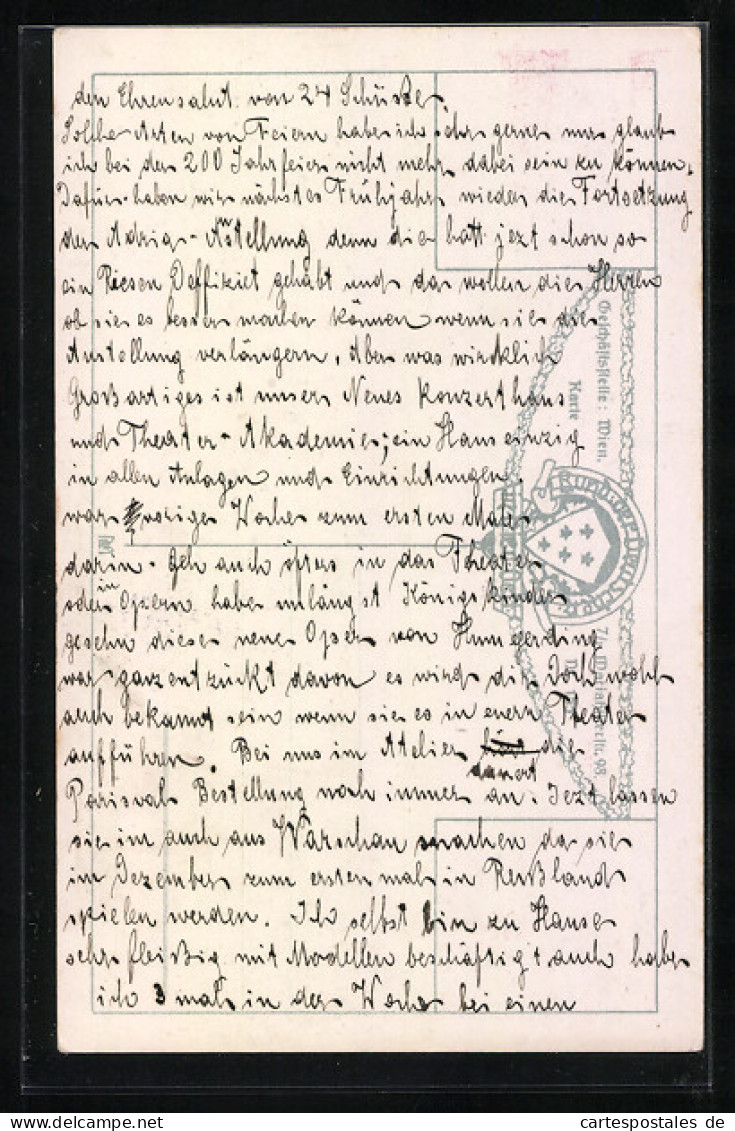 den Ehrensalut von 24 Schüsse.
Solche Arten von Feiern habe ich sehr gerne nur glaub
ich bei der 200 Jahrfeier nicht mehr dabei sein zu können.
Dafür haben wir nächstes Frühjahr wieder die Fortsetzung
der Adria-Austellung denn die hatt jezt schon so
ein Riesen Deffiziet gehabt und da wollen die Herrn
ob sie es besser machen können wenn sie die
Austellung verlängern. Aber was wircklich
Großartiges ist unser Neues Konzerthaus
und Theater-Akademie; ein Haus einzig
in allen Anlagen und Einrichtungen.
war vorige Woche zum ersten Male
darin. Geh auch öfters in das Theater
oder in Opern habe unlängst Königskinder
gesehn diese neue Oper von Humperding
war ganz entzückt davon es wird dir doch wohl
auch bekannt sein wenn sie es in eurer Theater
aufführen. Bei uns im Atelier dauert die
Parisval Bestellung noch immer an. Jezt lassen
sie im auch aus Warschau machen da sie
im Dezember zum ersten mal in Rußland
spielen werden. Ich selbst bin zu Hause
sehr fleißig mit Modellen beschäftigt auch habe
ich 3 mal in der Woche bei einen
Geschäftsstelle: Wien.
Karte
BUND DER DEUTSCHEN
cartespostales de